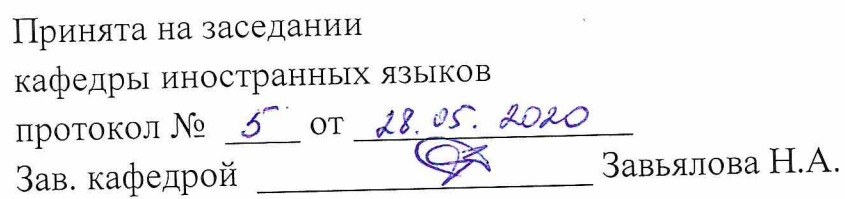 Принята на заседании
кафедры иностранных языков
протокол № 5 от 28.05.2020
Зав. кафедрой Завьялова Н.А.